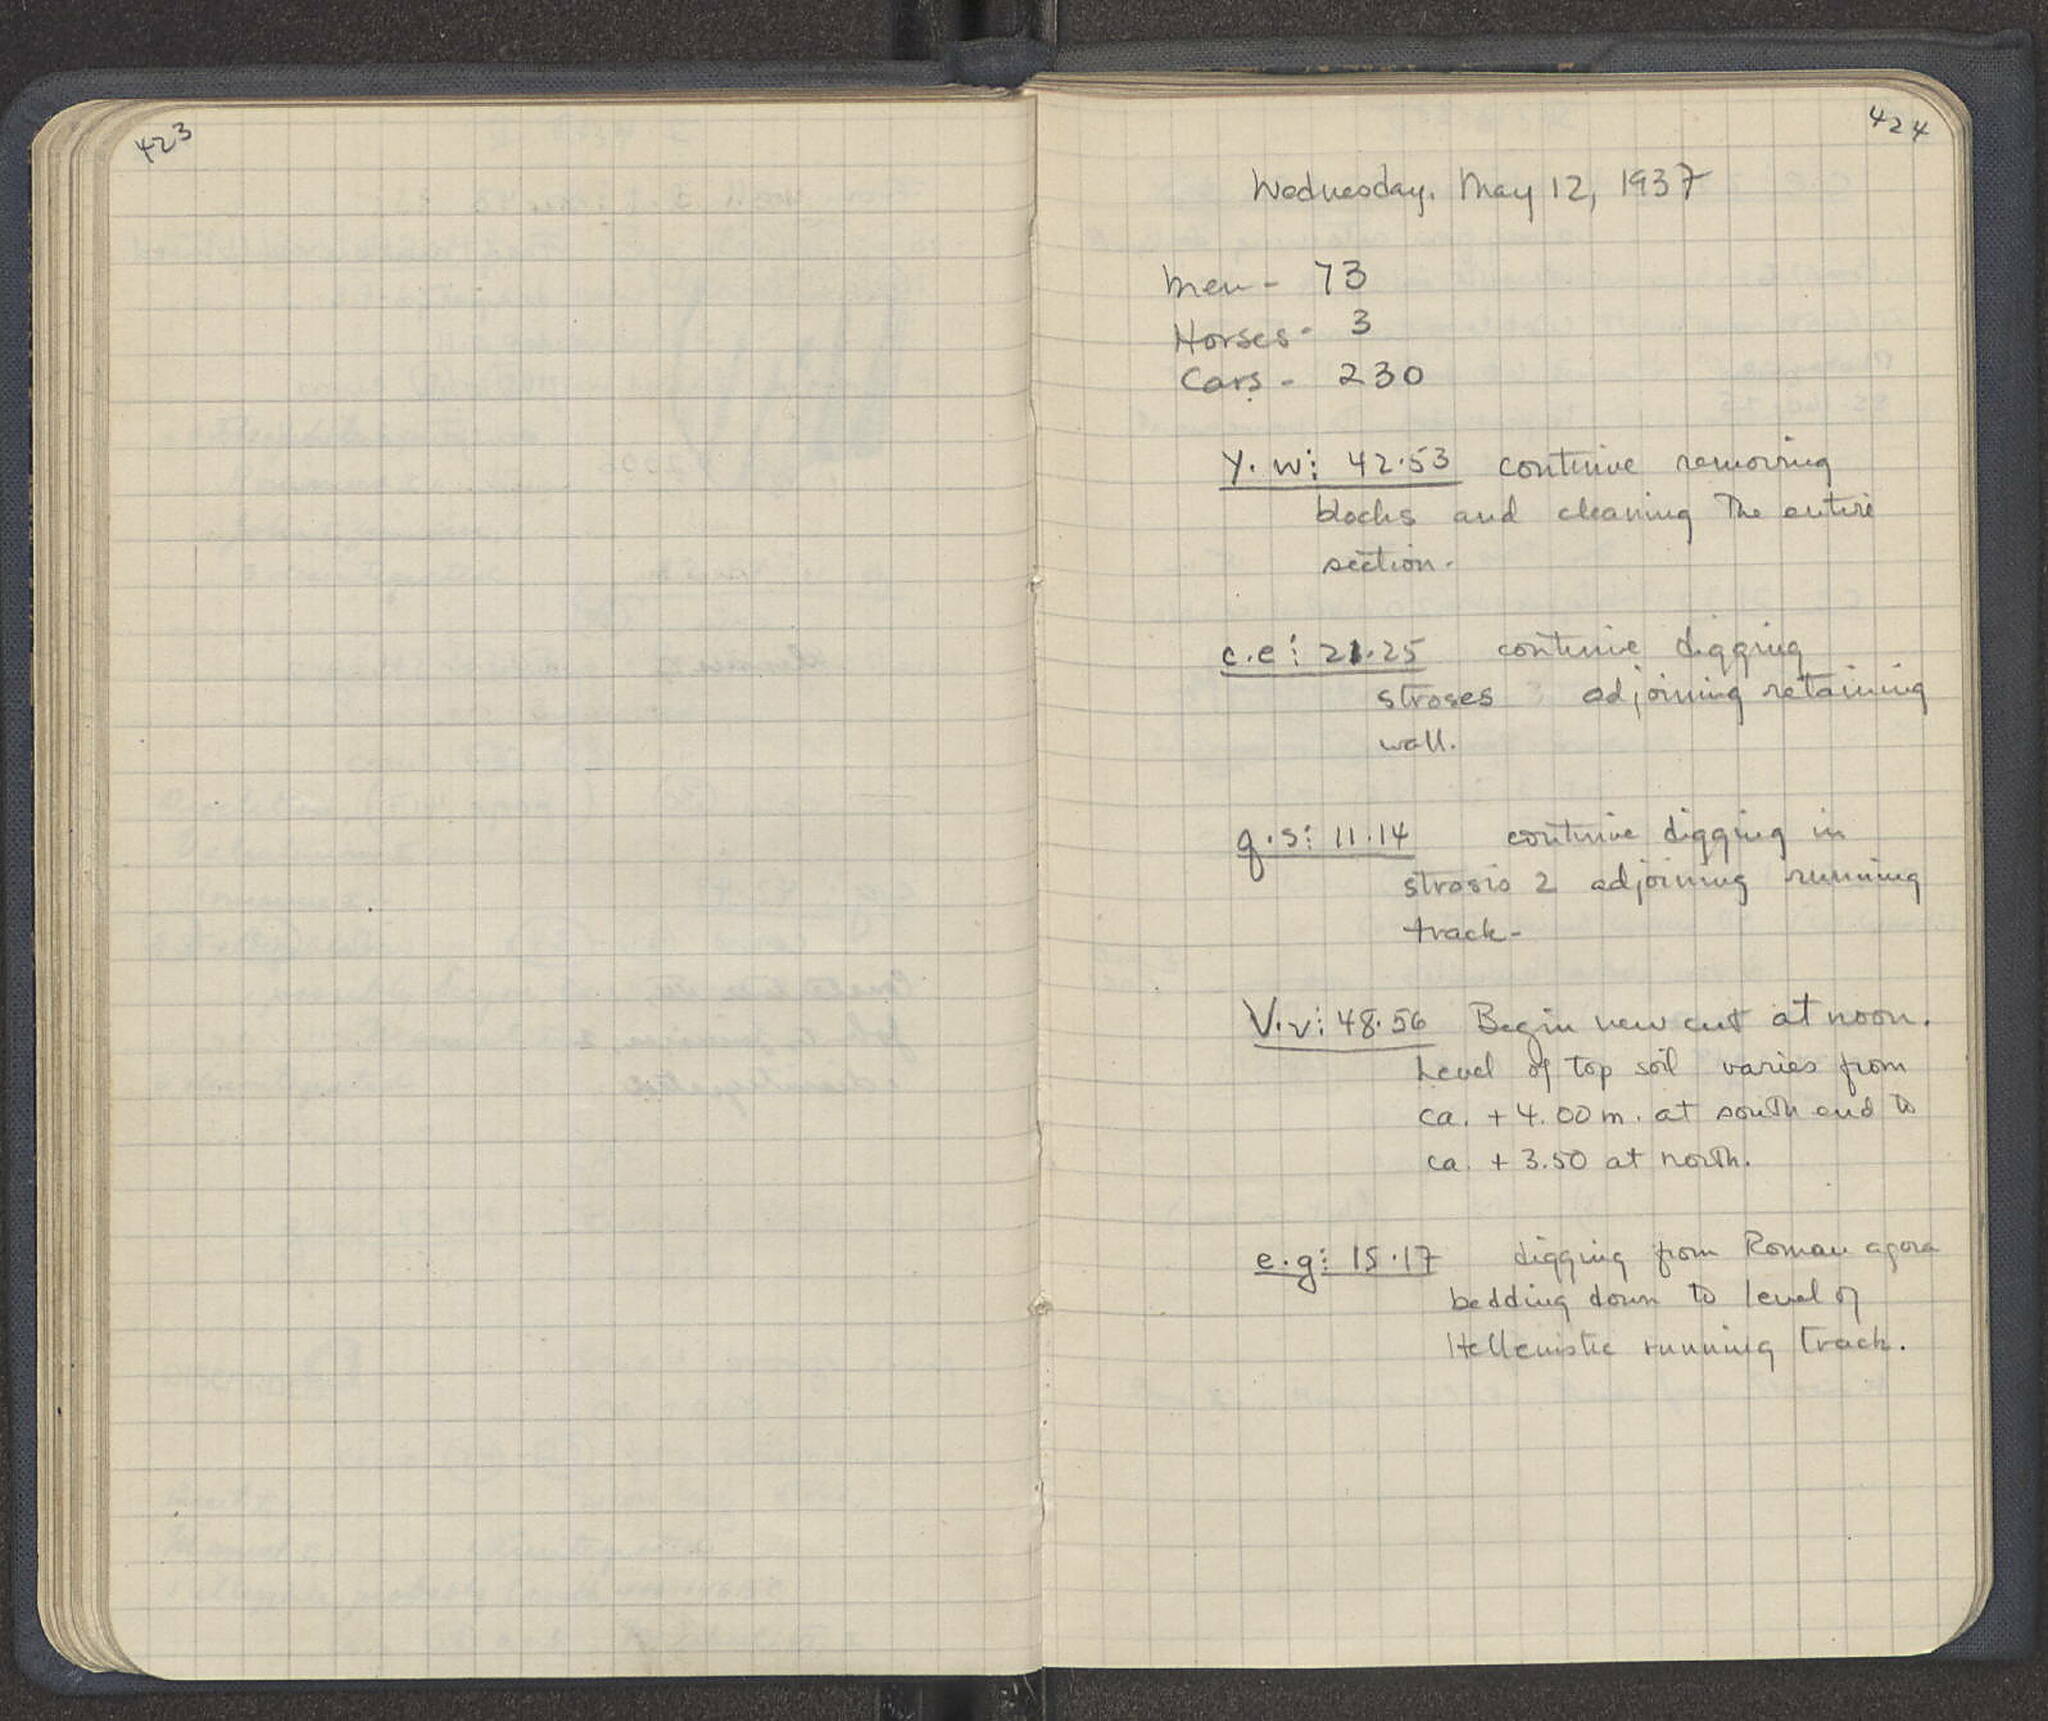 423
424
Wednesday, May 12, 1937
Men - 73
Horses - 3
Cars - 230
Y. w: 42.53 continue removing
blocks and cleaning the entire
section.
c.e: 21.25 continue digging
stroses adjoining retaining
wall.
q.s: 11.14 continue digging in
strosis 2 adjoining running
track -
V.v: 48.56 Begin new cut at noon.
Level of top soil varies from
ca. + 4.00 m. at south end to
ca. + 3.50 at north.
e.g: 15.17 digging from Roman agora
bedding down to level of
Hellenistic running track.